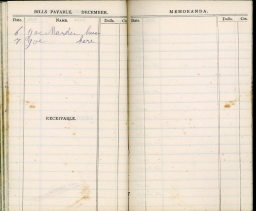 BILLS PAYABLE, DECEMBER.
Date. Name. Dolls. Cts.
6 Joe Marden here
7 Joe here
RECEIVABLE.
MEMORANDA.
Dolls. Cts.